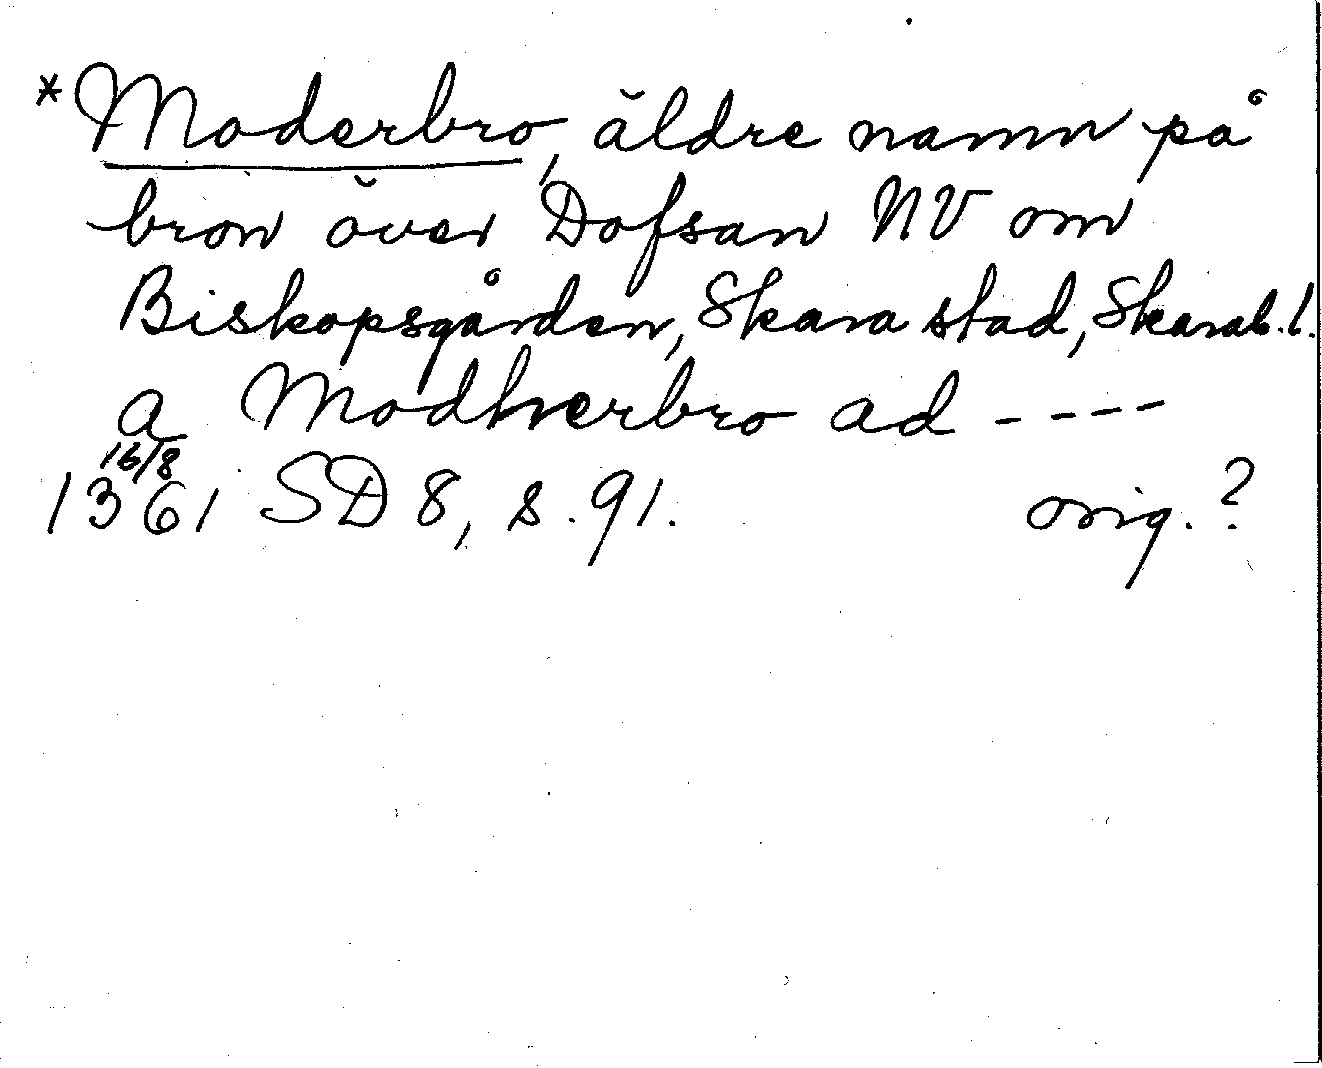 *Moderbro, äldre namn på
bron över Dofsan NV om
Biskopsgården, Skara stad, Skarab. l.
a Modherbro ad ----
16/8
1361 SD 8, s. 91. orig. ?